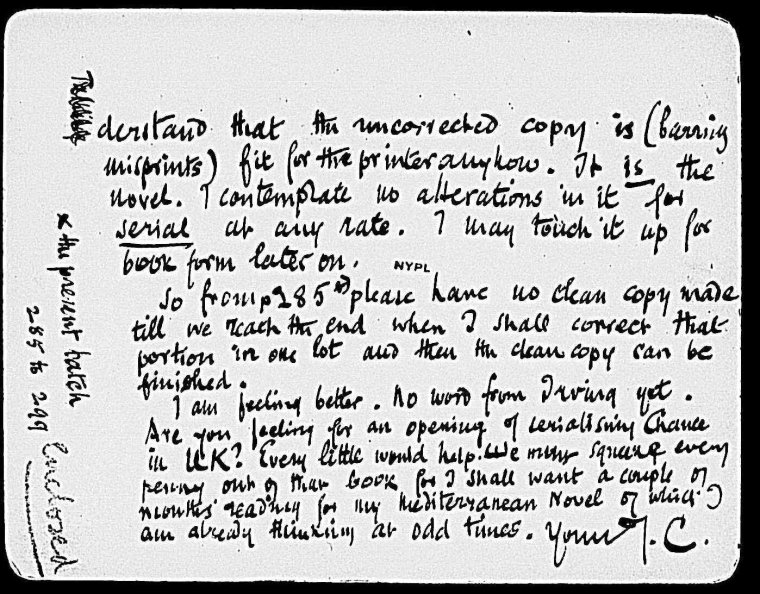 derstand that the uncorrected copy is (barring
misprints) fit for the printer anyhow. It is the
novel. I contemplate no alterations in it for
serial at any rate. I may touch it up for
book form later on.
NYPL
So from p 285 please have no clean copy made
till we reach the end when I shall correct that
portion in one lot and then the clean copy can be
finished.
I am feeling better. No word from Irving yet.
Are you feeling for an opening of serialising Chance
in UK? Every little would help. We must squeeze every
penny out of that book for I shall want a couple of
months' reading for my Mediterranean Novel of which I
am already thinking at odd times. Yours J. C.
& the present batch
285 to 299 Enclosed